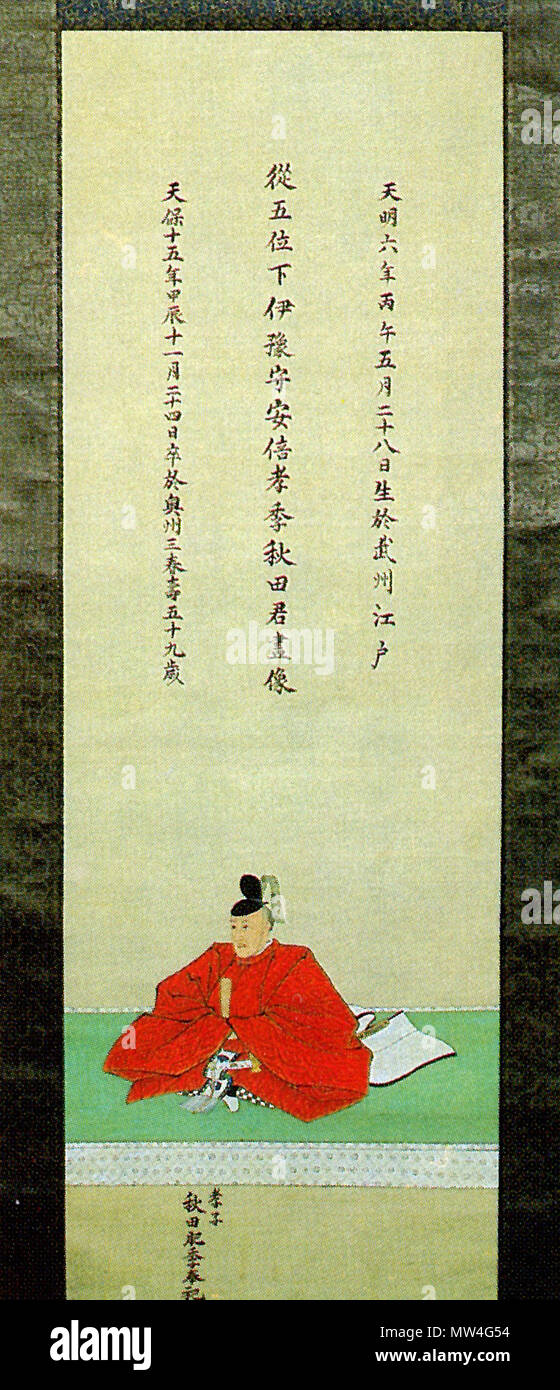 天明六年丙午五月二十八日生於武州江戸
從五位下伊豫守安倍孝季秋田君畫像
天保十五年甲辰十一月二十四日卒於奥州三春壽五十九歳
孝子
秋田肥季奉祀
alamy
a
alamy
Image ID: MW4G54
www.alamy.com